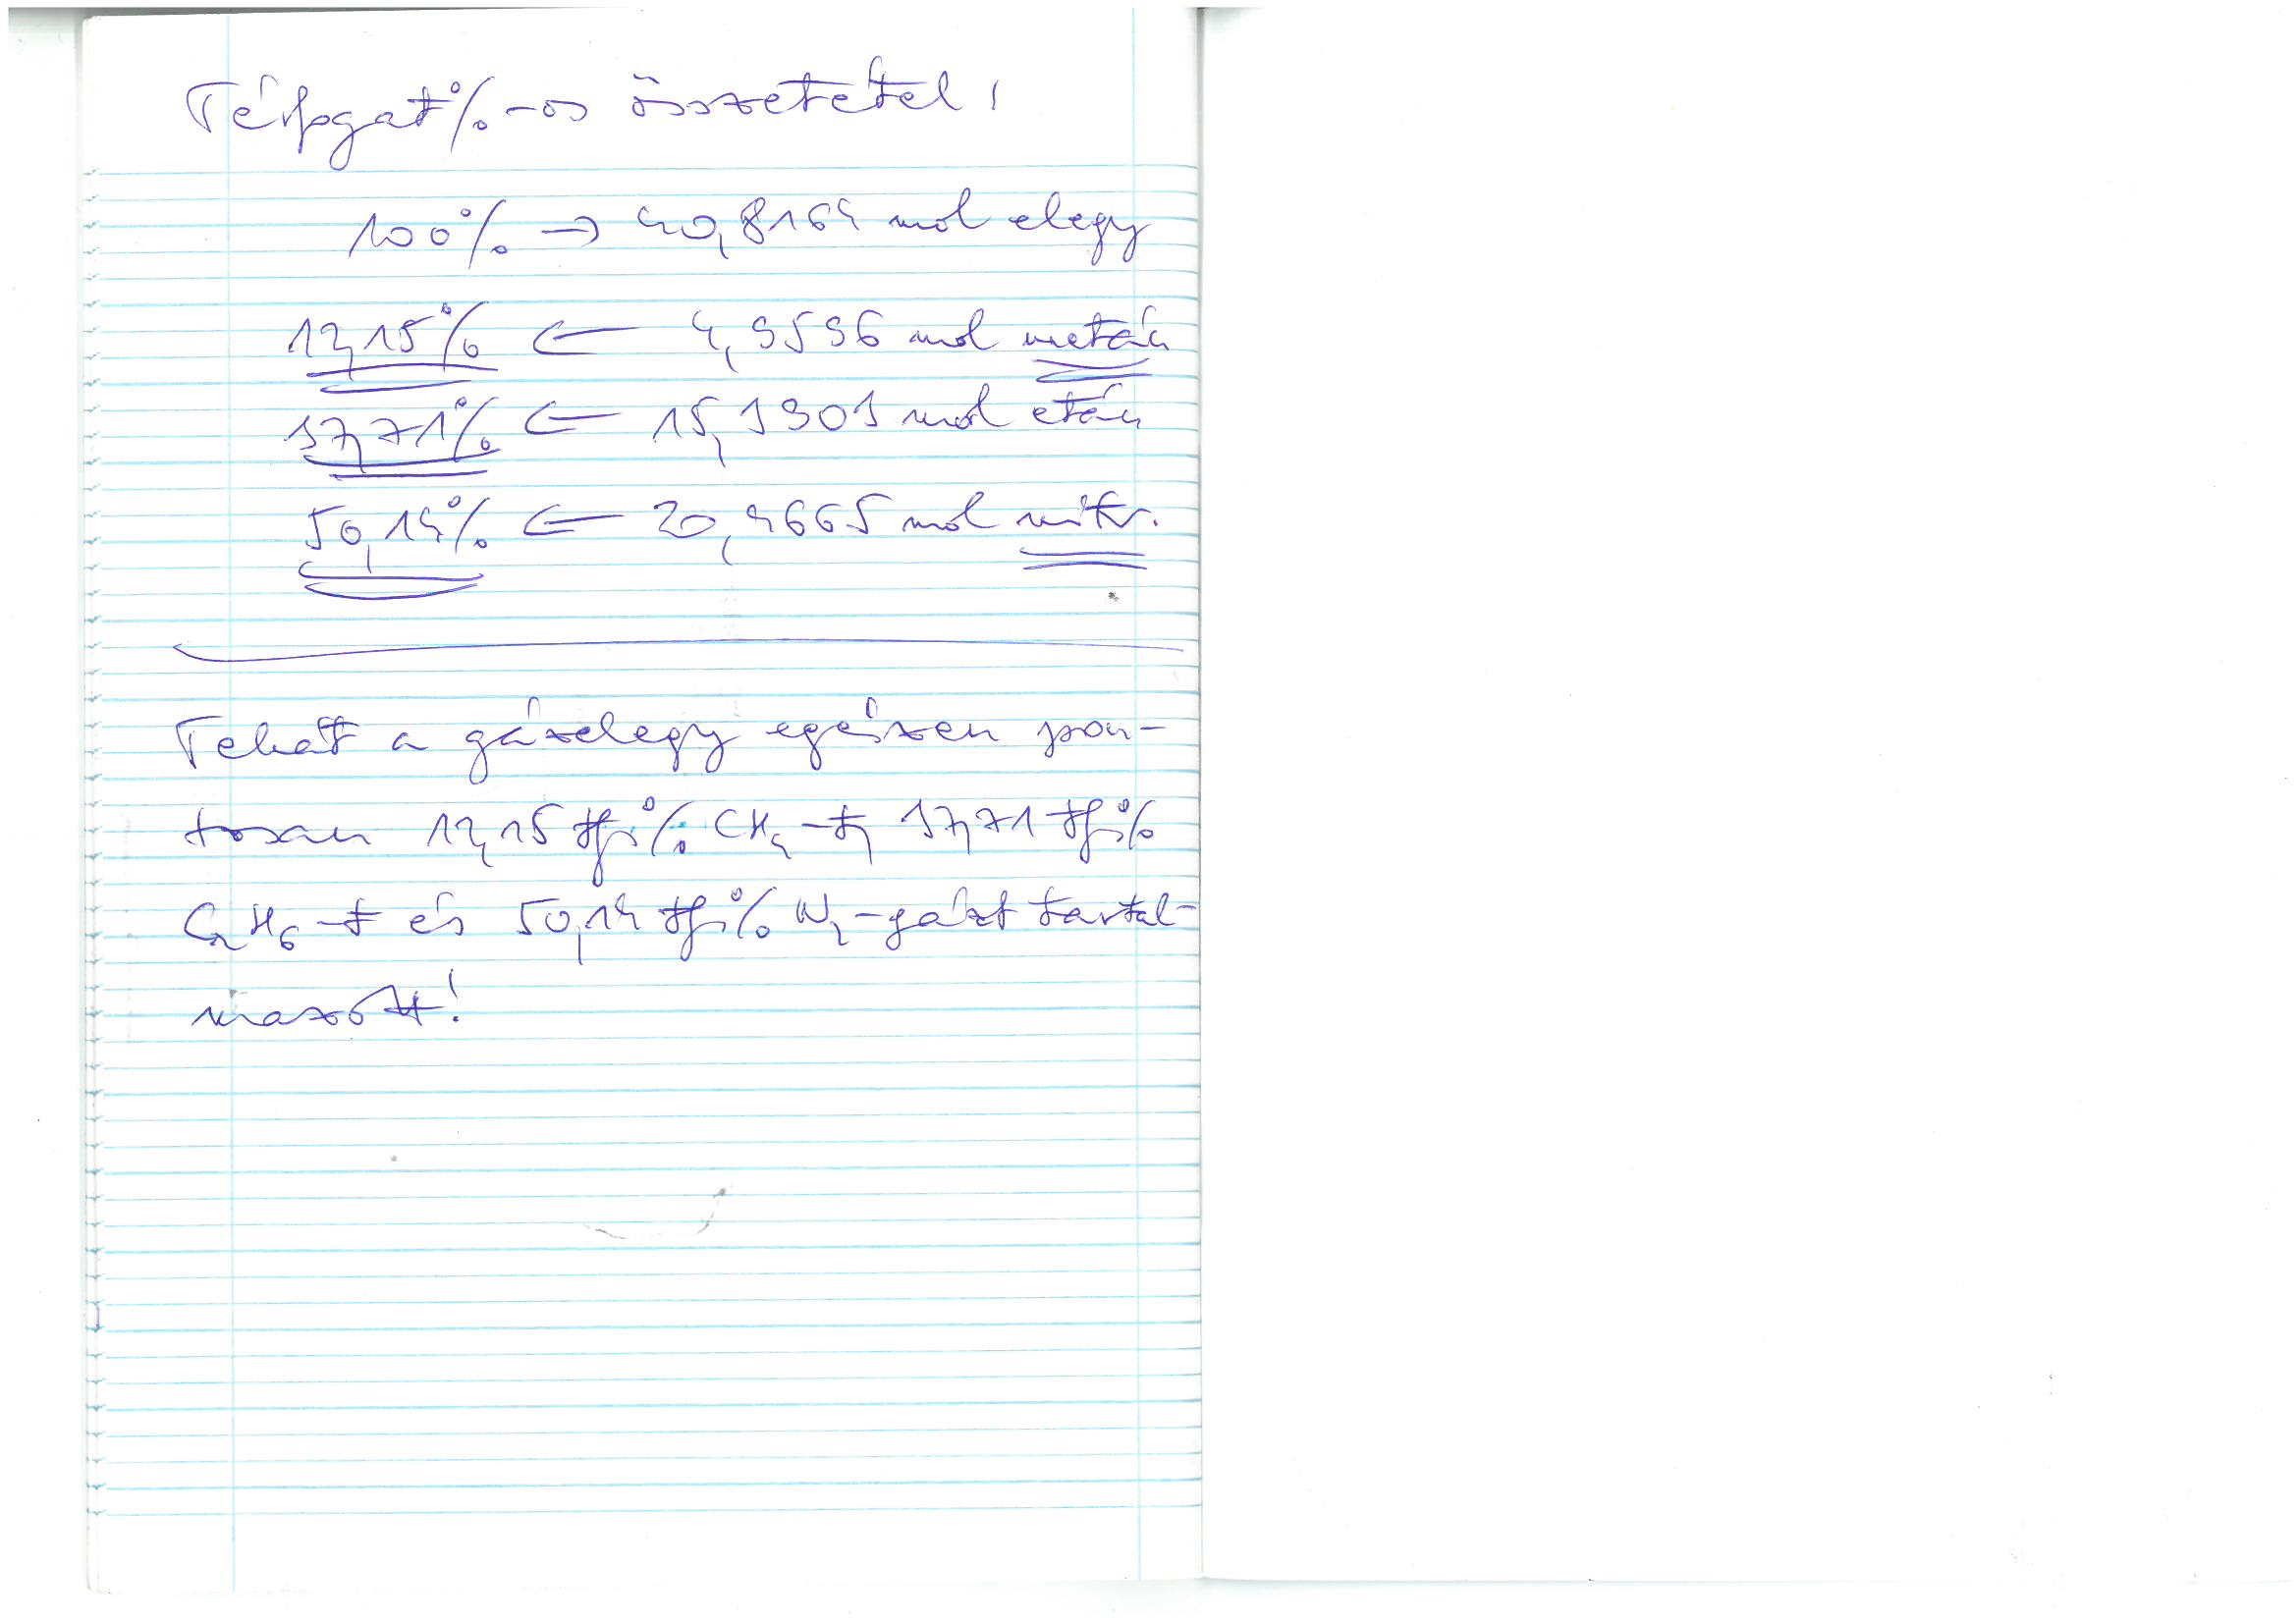 Térfogat%-os összetétel:
100% → 40,8164 mol elegy
12,15% ← 4,9596 mol metán
37,71% ← 15,3903 mol etán
50,14% ← 20,4665 mol nitr.
Tehát a gázelegy egészen pon-
tosan 12,15 tf.% CH₄-t, 37,71 tf.%
C₂H₆-t és 50,14 tf.% N₂-gázt tartal-
mazott!